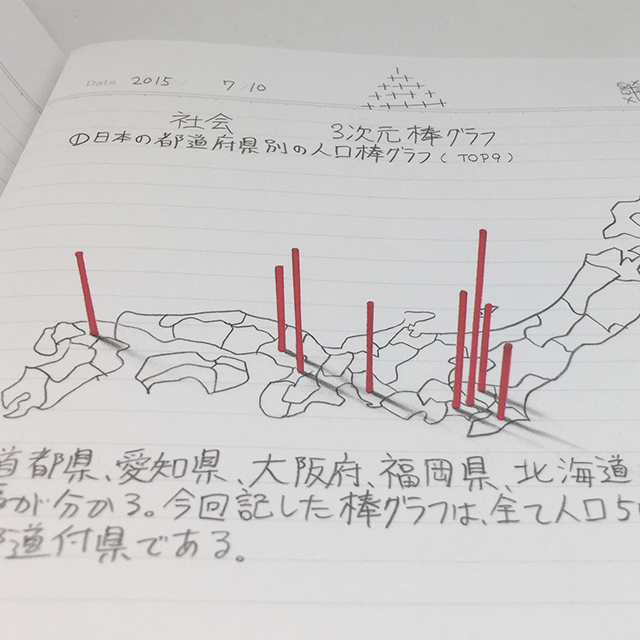 Date 2015 / 7 / 10
社会 3次元棒グラフ
①日本の都道府県別の人口棒グラフ(TOP9)
首都県、愛知県、大阪府、福岡県、北海道
が分かる。今回記した棒グラフは、全て人口5
道付県である。